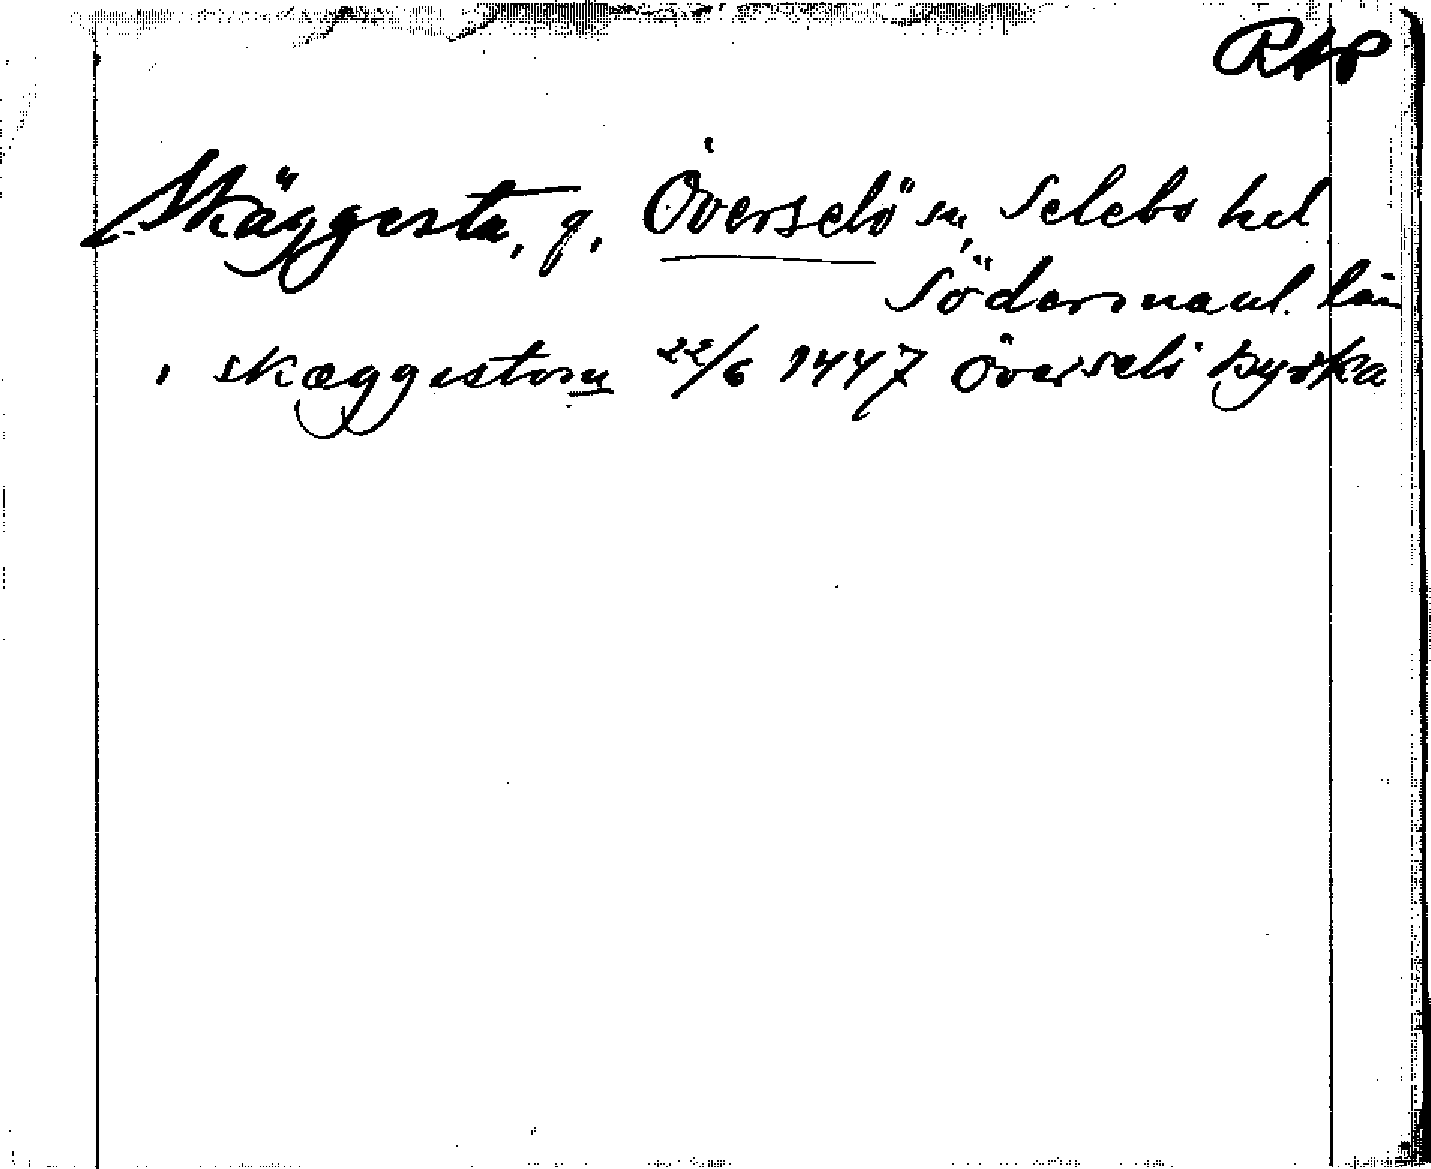 RAP
Skäggesta, g. Överselö sn, Selebo hd
Södermanl. län
i skæggestom 22/6 1447 Överselö kyrka